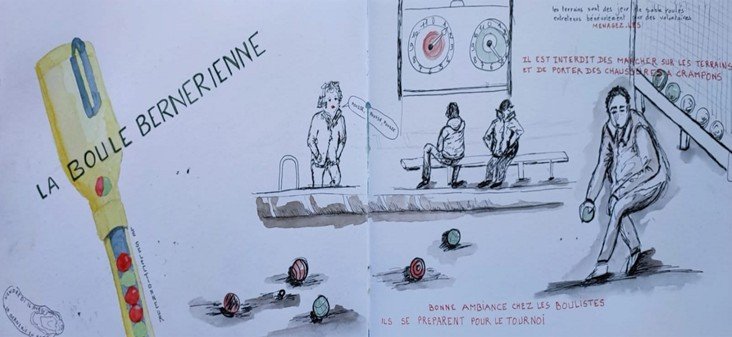 LA BOULE BERNERIENNE
les terrains sont des jeux de sable roulés
entretenus bénévolement par des volontaires
MENAGEZ-LES
IL EST INTERDIT DES MARCHER SUR LES TERRAINS
ET DE PORTER DES CHAUSSURES A CRAMPONS
BONNE AMBIANCE CHEZ LES BOULISTES
ILS SE PREPARENT POUR LE TOURNOI